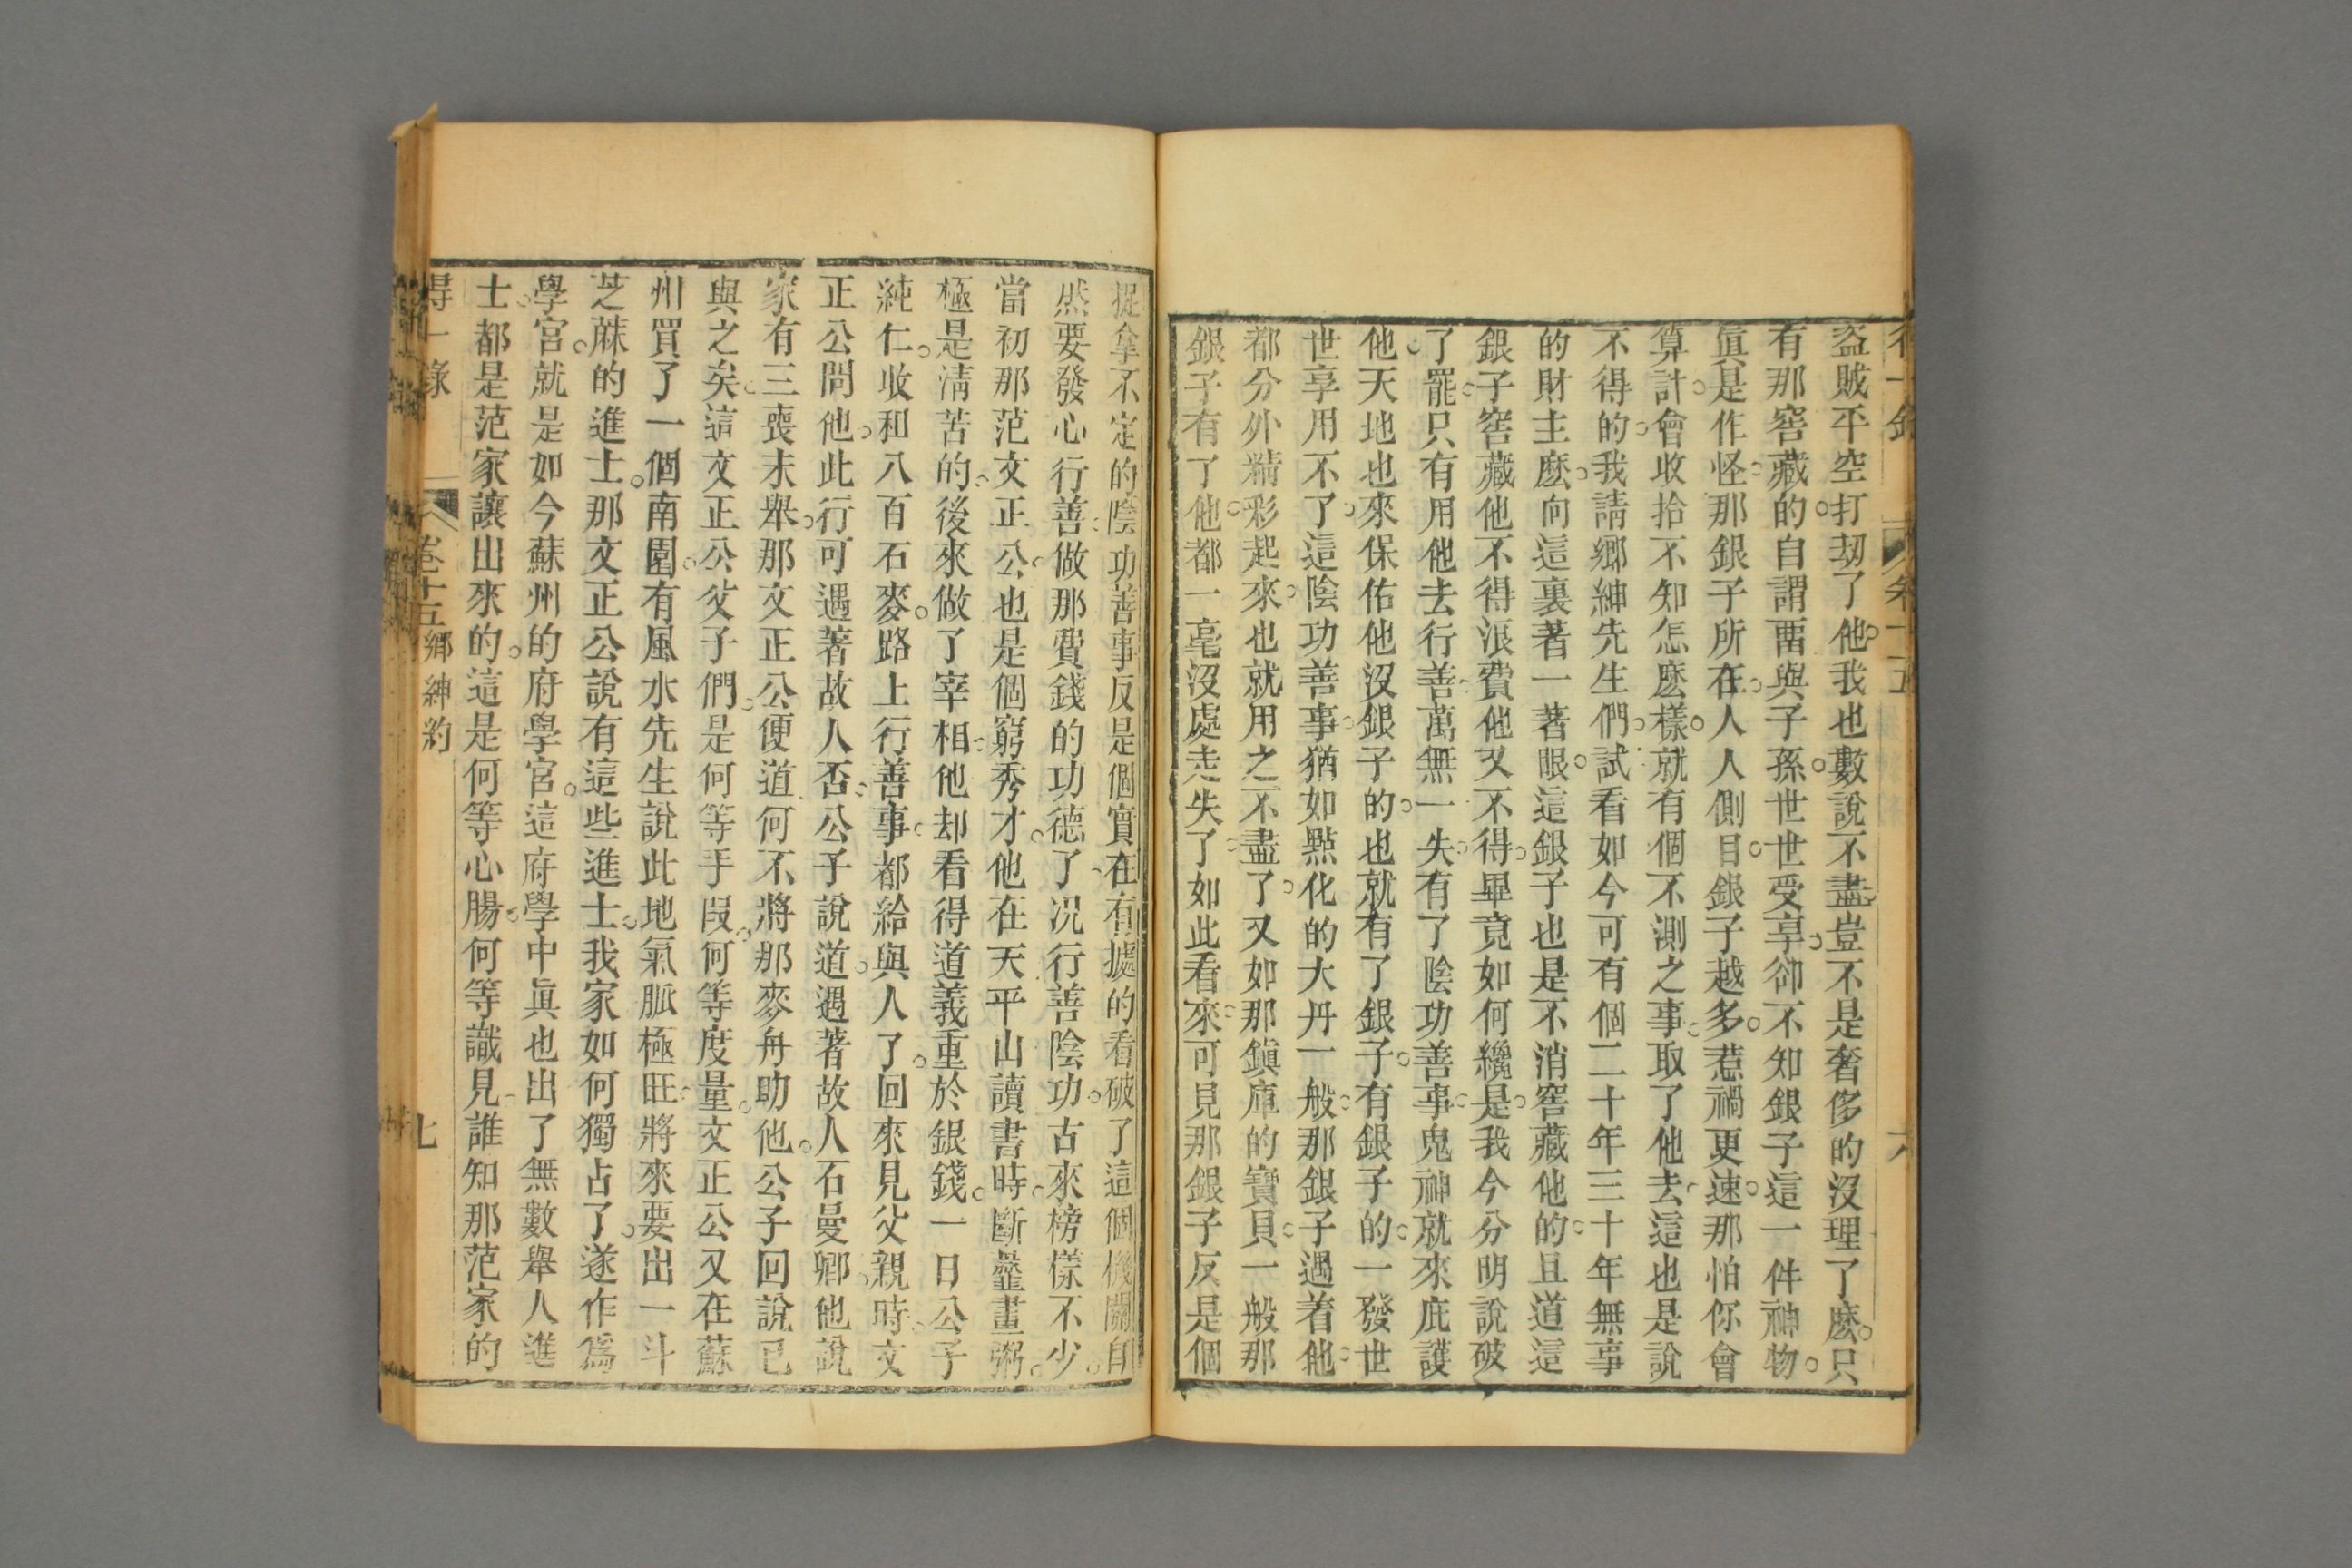 盗賊平空打刼了他我也數說不盡豈不是奢侈的沒理了麽只
有那窖藏的自謂畱與子孫世世受享卻不知銀子這一件神物
眞是作怪那銀子所在人人側目銀子越多惹禍更速那怕你會
算計會收拾不知怎麽樣就有個不測之事取了他去這也是說
不得的我請鄉紳先生們試看如今可有個二十年三十年無事
的財主麽向這裏著一著眼這銀子也是不消窖藏他的且道這
銀子窖藏他不得浪費他又不得畢竟如何纔是我今分明說破
了罷只有用他去行善萬無一失有了陰功善事鬼神就來庇護
他天地也來保佑他沒銀子的也就有了銀子有銀子的一發世
世享用不了這陰功善事猶如點化的大丹一般那銀子遇着他
都分外精彩起來也就用之不盡了又如那鎮庫的寶貝一般那
銀子有了他都一毫沒處走失了如此看來可見那銀子反是個
捉拿不定的陰功善事反是個實在有據的看破了這個機關自
然要發心行善做那費錢的功德了况行善陰功古來榜樣不少
當初那范文正公也是個窮秀才他在天平山讀書時斷虀畫粥
極是淸苦的後來做了宰相他却看得道義重於銀錢一日公子
純仁收租八百石麥路上行善事都給與人了回來見父親時文
正公問他此行可遇著故人否公子說道遇著故人石曼卿他說
家有三喪未舉那文正公便道何不將那麥舟助他公子回說已
與之矣這文正公父子們是何等手段何等度量文正公又在蘇
州買了一個南園有風水先生說此地氣脈極旺將來要出一斗
芝蔴的進士那文正公說有這些進士我家如何獨占了遂作爲
學宮就是如今蘇州的府學宮這府學中眞也出了無數舉人進
士都是范家讓出來的這是何等心腸何等識見誰知那范家的
得一錄 卷十五鄉紳約 七